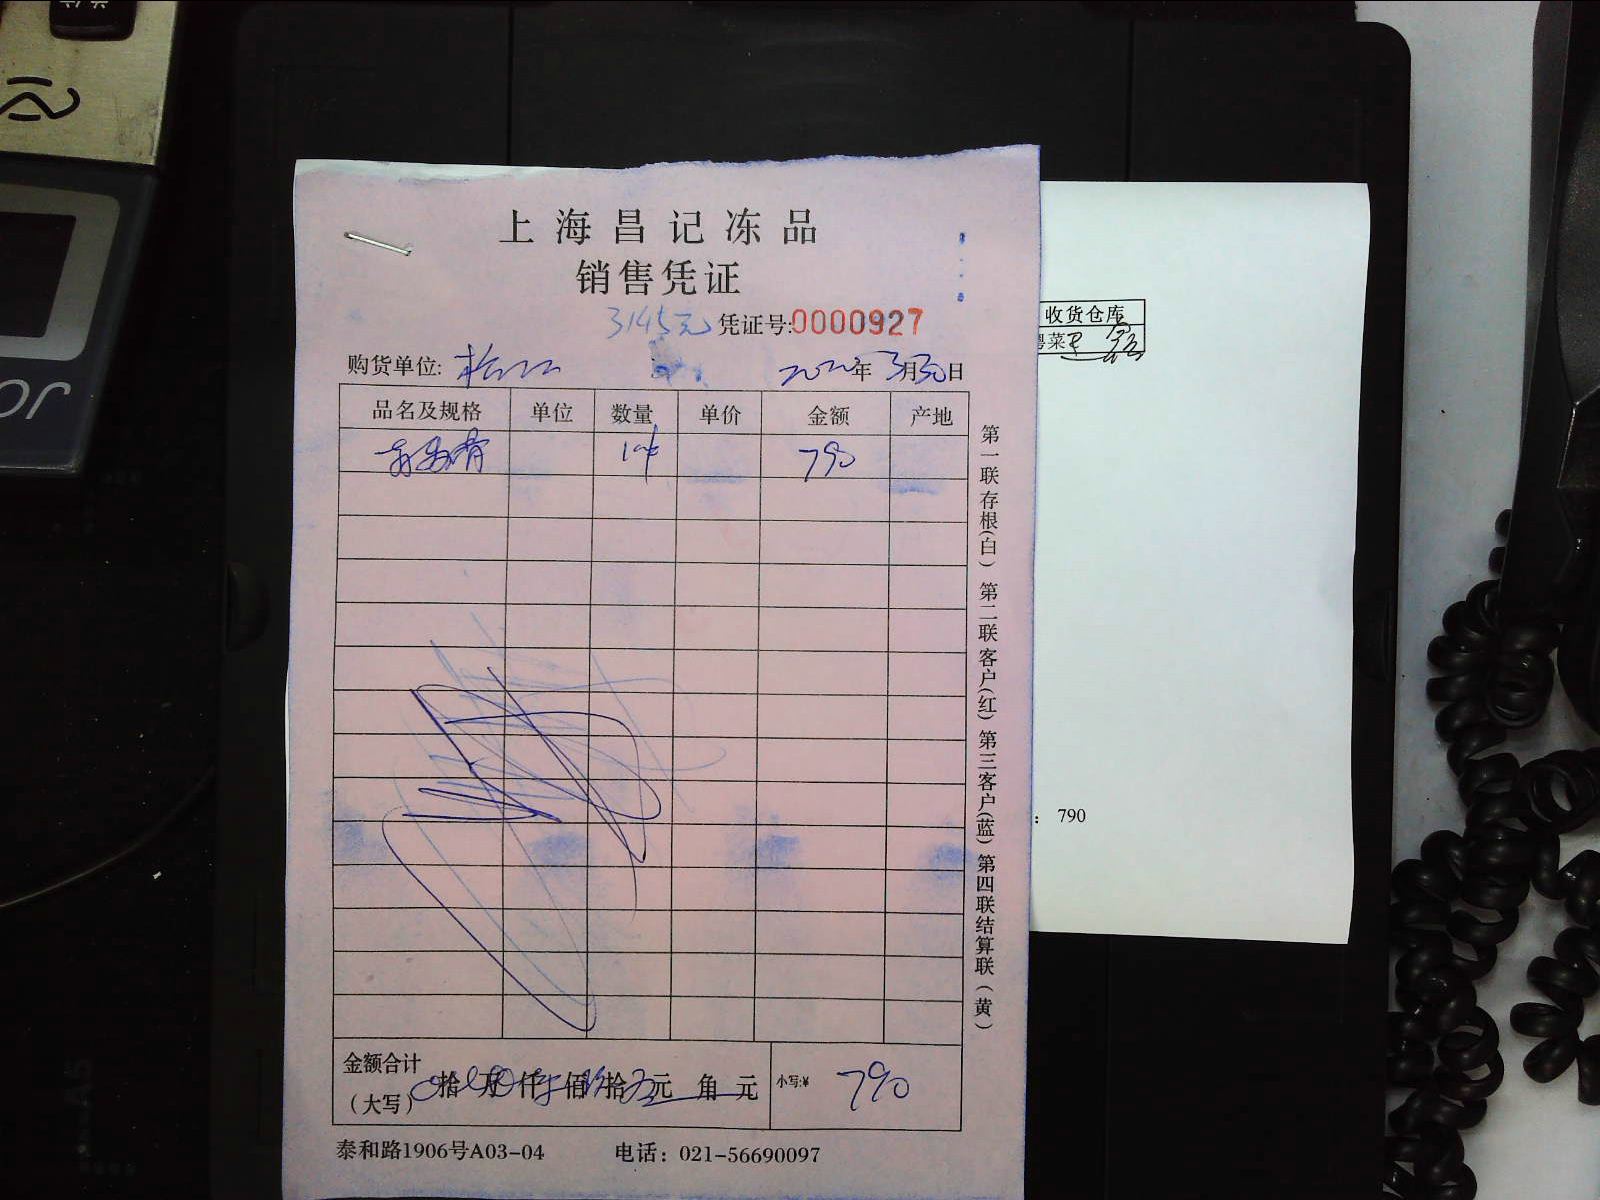 上海昌记冻品
销售凭证
3145元 凭证号:0000927
购货单位: 年3月30日
品名及规格 单位 数量 单价 金额 产地
1件 790
第一联存根(白) 第二联客户(红) 第三客户(蓝) 第四联结算联(黄)
金额合计
(大写) 拾 万 仟 佰 拾 元 角 元 小写:¥ 790
泰和路1906号A03-04 电话: 021-56690097
收货仓库
粤菜
: 790